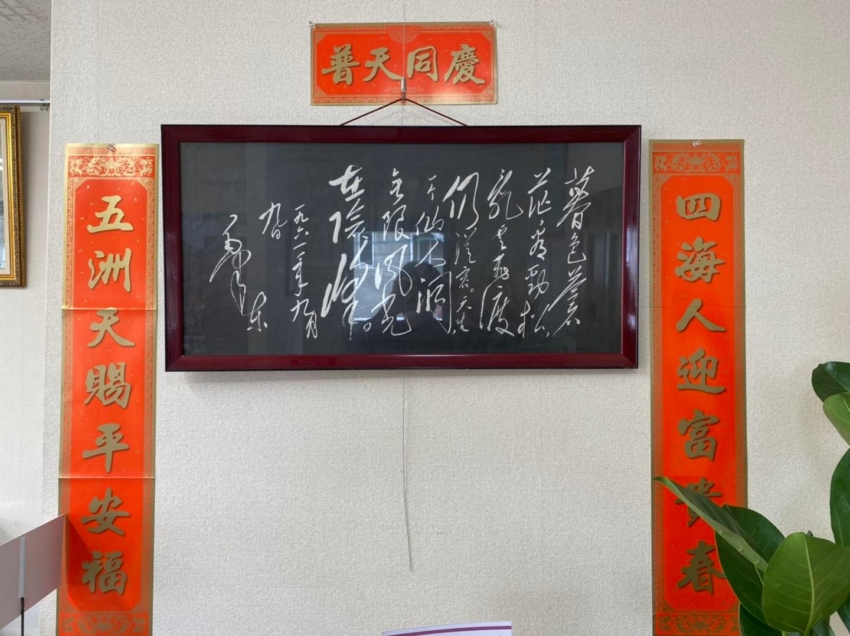 普天同慶
四海人迎富貴春
暮色蒼
茫看劲松
乱云飞渡
仍從容天生
一个仙人洞
无限风光
在险峰
一九六一年九月
九日
毛泽东
五洲天賜平安福